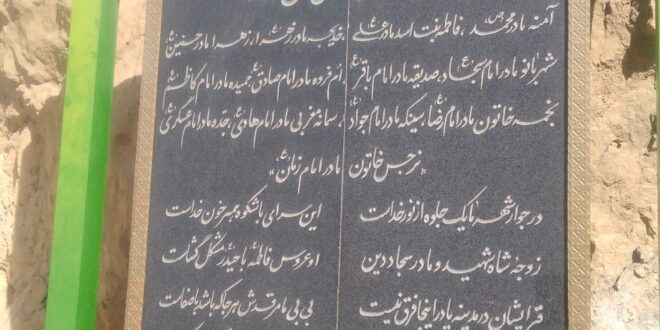 آمنه مادر محمد(ص)، فاطمه بنت اسد مادر علی(ع)، خدیجه مادر زهرا(س)، زهرا مادر حسنین(ع)
شهربانو مادر امام سجاد(ع)، صدیقه مادر امام باقر(ع)، ام فرده مادر امام صادق(ع)، حمیده مادر امام کاظم(ع)
نجمه خاتون مادر امام رضا(ع)، سبیکه مادر امام جواد(ع)، سمانه مغربی مادر امام هادی(ع)، حدّه مادر امام عسگری(ع)
«نرجس خاتون مادر امام زمان(ع)»
در جوار شهر ما یک جلوه از نور خداست این سرای باشکوه همسر خون خداست
زوجه شاه شهید و مادر سجاد دین او عروس فاطمه با حیدر مشکل گشاست
قبر ایشان در مدینه یا در اینجا فرق نیست بی بی ما مرقدش هر جا که باشد با صفاست